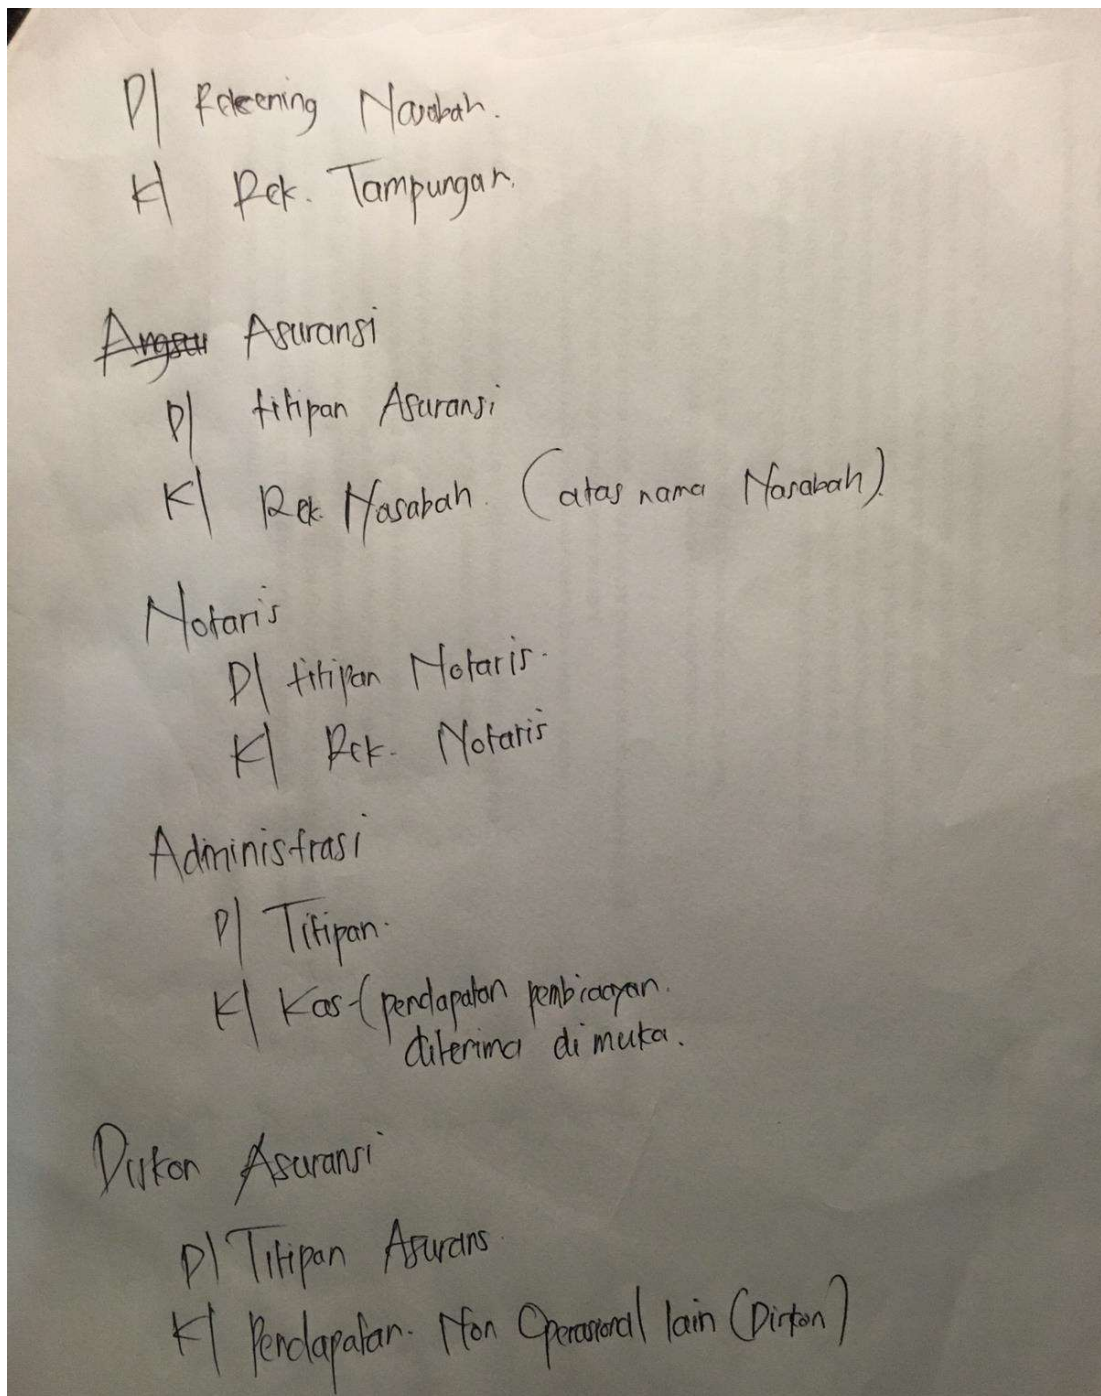 D/ Rekeening Nasabah.
K/ Rek. Tampungan.
Angsu Asuransi
D/ titipan Asuransi
K/ Rek. Nasabah. (atas nama Nasabah).
Notaris
D/ titipan Notaris.
K/ Rek. Notaris
Administrasi
D/ Titipan.
K/ Kas-(pendapatan pembiaayan.
diterima di muka.
Diskon Asuransi
D/ Titipan Asurans
K/ Pendapatan. Non Operasional lain (Diskon)